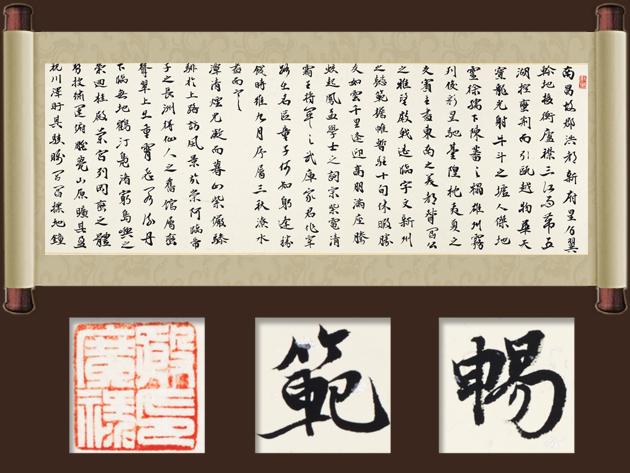 南昌故郡洪都新府星分翼
軫地接衡廬襟三江而帶五
湖控蠻荆而引甌越物華天
寶龍光射牛斗之墟人傑地
靈徐孺下陳蕃之榻雄州霧
列俊彩星馳臺隍枕夷夏之
交賓主盡東南之美都督閻公
之雅望棨戟遙臨宇文新州
之懿範襜帷暫駐十旬休暇勝
友如雲千里逢迎高朋滿座騰
蛟起鳳孟學士之詞宗紫電清
霜王將軍之武庫家君作宰
路出名區童子何知躬逢勝
餞時維九月序屬三秋潦水
盡而寒
潭清煙光凝而暮山紫儼驂
騑於上路訪風景於崇阿臨帝
子之長洲得仙人之舊館層巒
聳翠上出重霄飛閣流丹
下臨無地鶴汀鳧渚窮島嶼之
縈迴桂殿蘭宮列岡巒之體
勢披繡闥俯雕甍山原曠其盈
視川澤盱其駭矚閭閻撲地鐘
暢
範